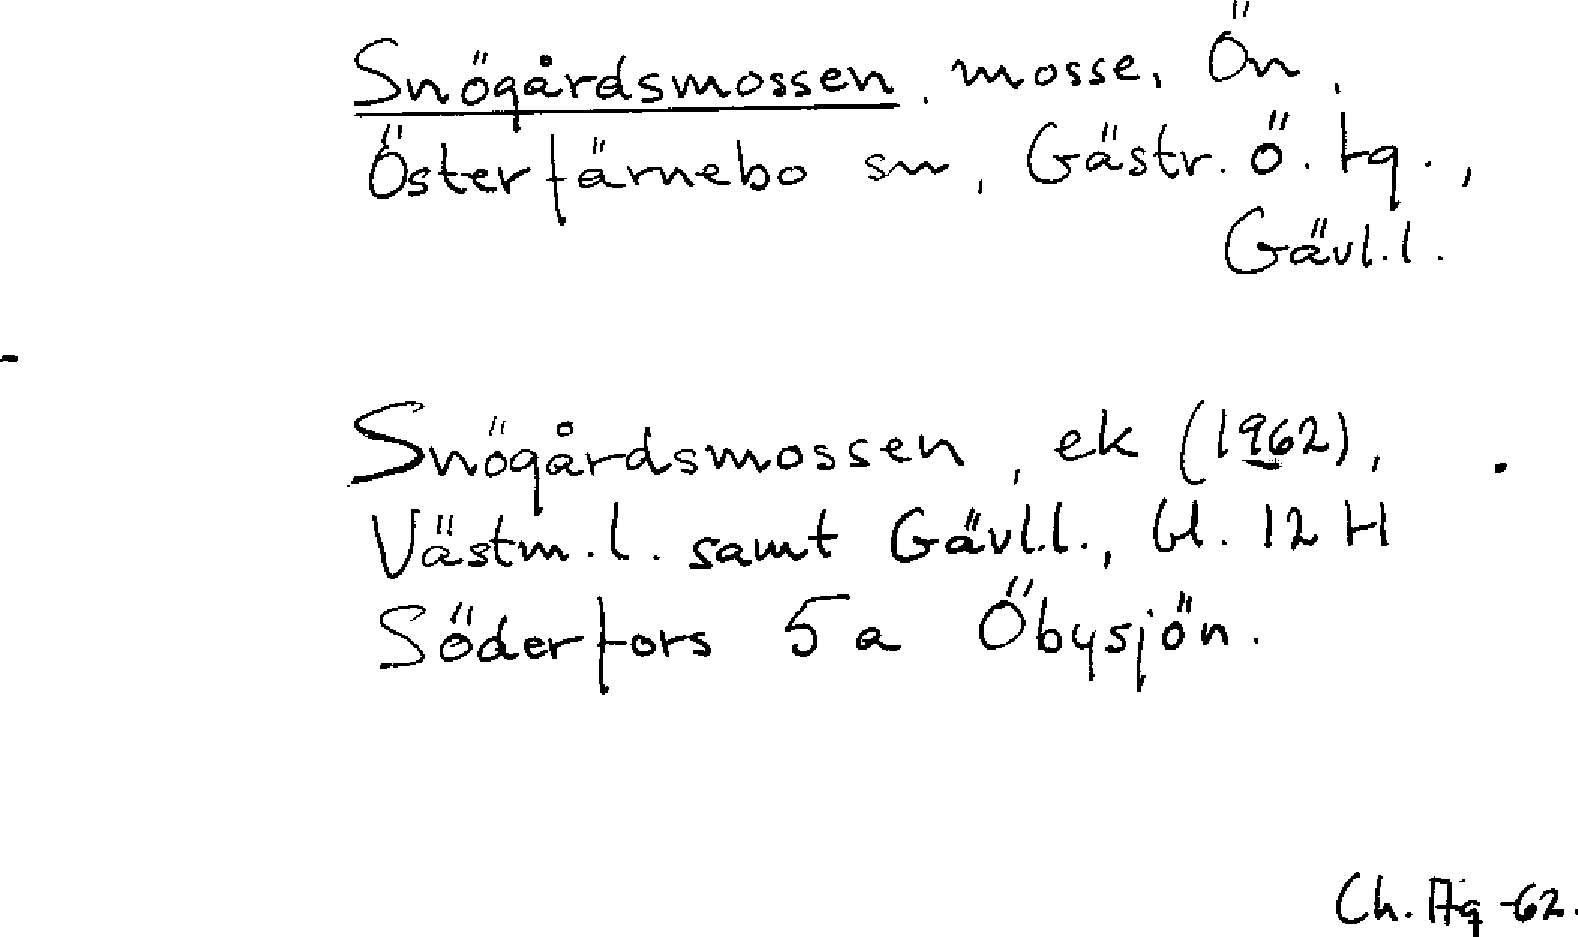 Snögårdsmossen, mosse, Ön,
Österfärnebo sn, Gästr. ö. tg.,
Gävl.l.
Snögårdsmossen, ek (1962),
Västm.l. samt Gävl.l., bl. 12 H
Söderfors 5 a Öbysjön.
Ch. Hg -62.